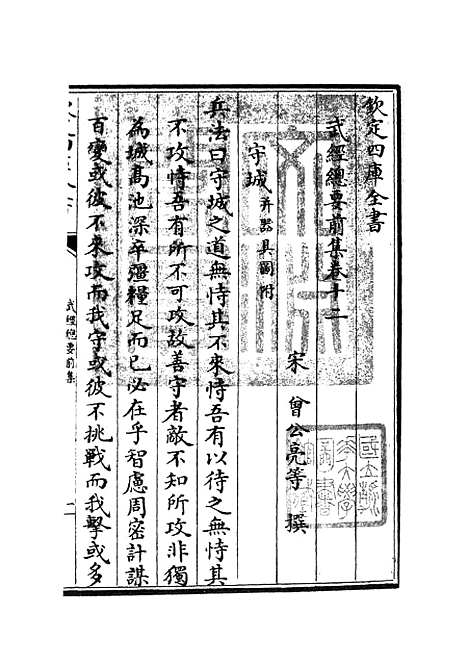 欽定四庫全書
武經總要前集卷十二
宋 曾公亮等 撰
守城并器具圖附
兵法曰守城之道無恃其不來恃吾有以待之無恃其
不攻恃吾有所不可攻故善守者敵不知所攻非獨
為城髙池深卒彊糧足而已必在乎智慮周密計謀
百變或彼不來攻而我守或彼不挑戰而我擊或多
武經總要前集